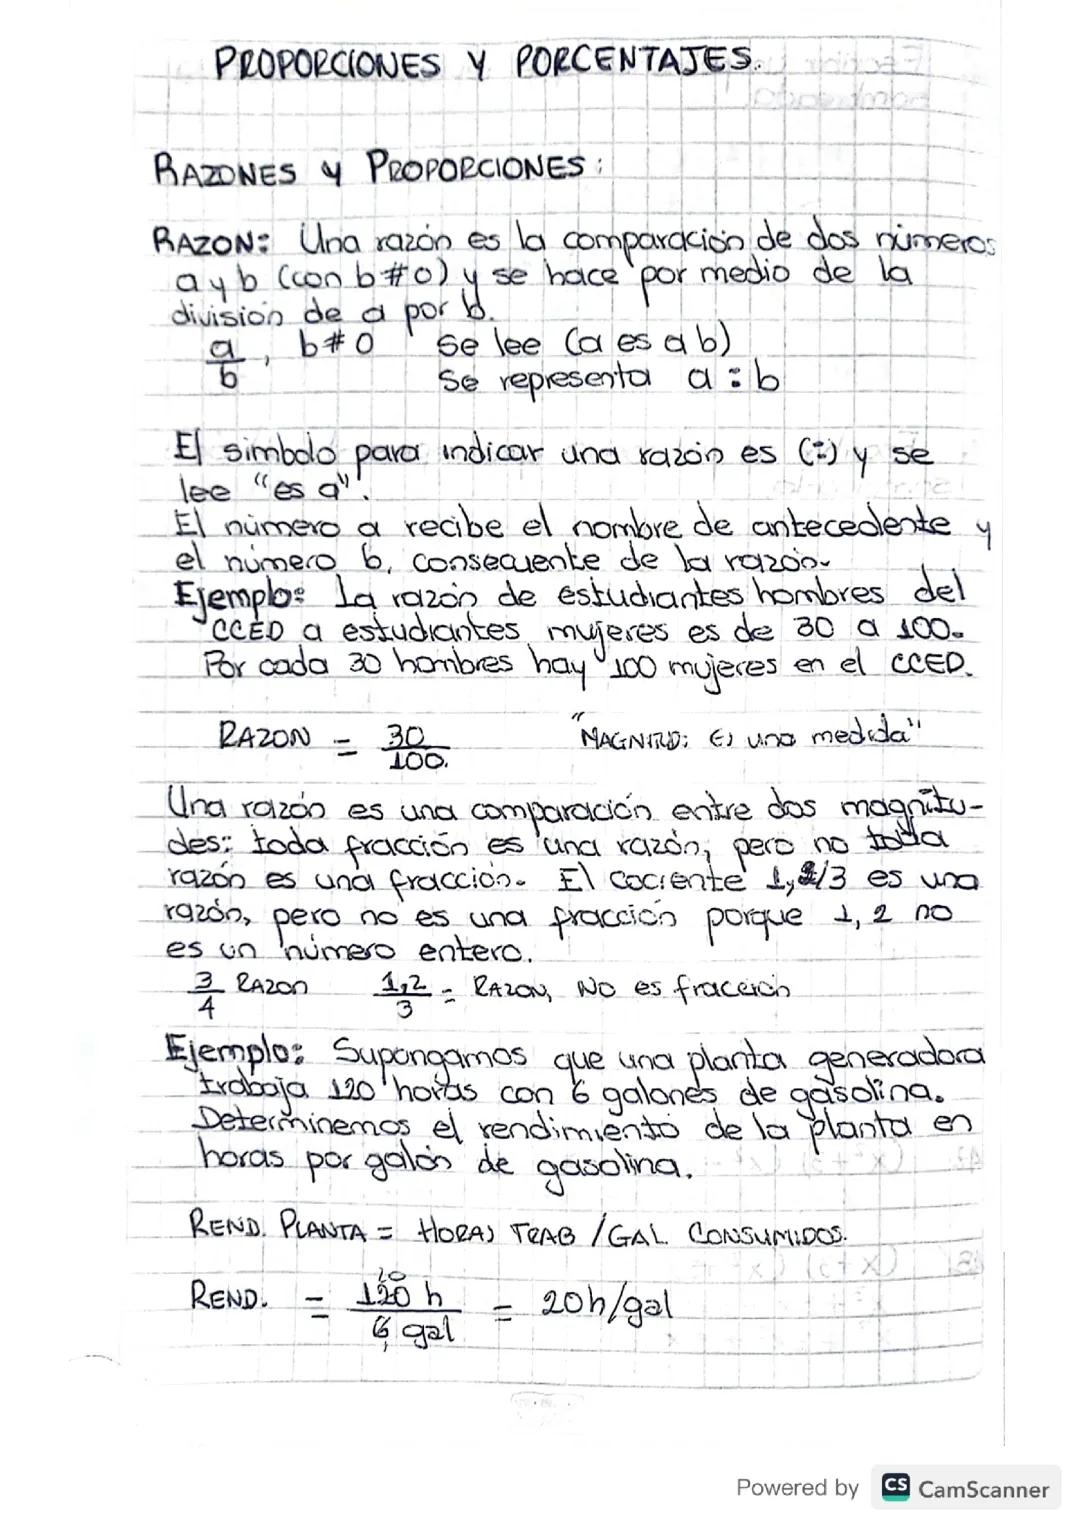 PROPORCIONES Y PORCENTAJES.
RAZONES Y PROPORCIONES:
RAZON: Una razón es la comparación de dos números
a y b (con b#0) y se hace por medio de la
división de a por b.
a/b, b#0 Se lee (a es a b)
Se representa a:b
El simbolo para indicar una razón es (:) y se
lee "es a".
El número a recibe el nombre de antecedente y
el número b, consecuente de la razón.
Ejemplo: La razón de estudiantes hombres del
CCED a estudiantes mujeres es de 30 a 100.
Por cada 30 hombres hay 100 mujeres en el CCED.
RAZON = 30/100. "MAGNITUD: Es una medida"
Una razón es una comparación entre dos magnitu-
des: toda fracción es una razón, pero no toda
razón es una fracción. El cociente 1,2/3 es una
razón, pero no es una fracción porque 1,2 no
es un número entero.
3/4 RAZON 1,2/3 = RAZON, NO es fracción
Ejemplo: Supongamos que una planta generadora
trabaja 120 horas con 6 galones de gasolina.
Determinemos el rendimiento de la planta en
horas por galón de gasolina.
REND. PLANTA = HORAS TRAB /GAL CONSUMIDOS.
20
REND. = 120 h/6 gal = 20h/gal
Powered by CS CamScanner